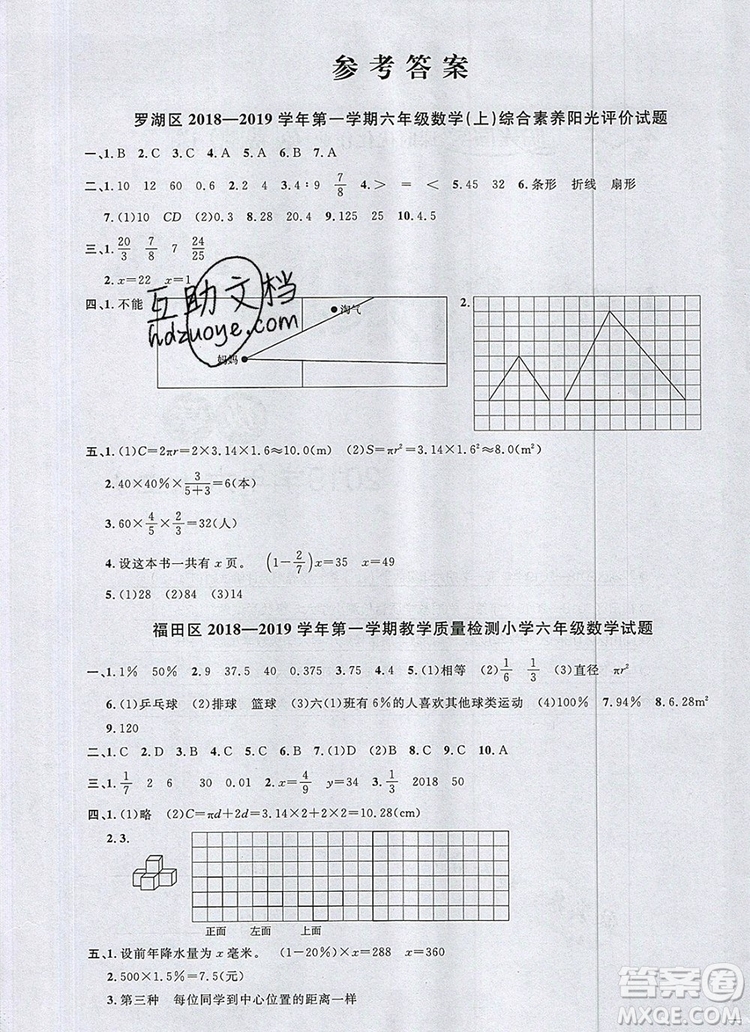 参考答案
罗湖区 2018—2019 学年第一学期六年级数学(上)综合素养阳光评价试题
一、1. B 2. C 3. A 4. A 5. C 6. B 7. A
二、1. 10 12 60 0.6 2. 9 3. 4∶9 7/8 4. > = < 5. 45 32 6. 条形 折线 扇形
7. (1)10 CD (2)0.3 8. 28 20.4 9. 125 25 10. 4.5
三、1. 20/3 7/8 7 24/25
2. x=22 x=1
四、1. 不能
淘气
妈妈
2.
互助文档
hdzuoye.com
五、1. (1)C=2πr=2×3.14×1.6≈10.0(m) (2)S=πr²=3.14×1.6²≈8.0(m²)
2. 40×40%×3/(5+3)=6(本)
3. 60×4/5×2/3=32(人)
4. 设这本书一共有 x 页。 (1−2/7)x=35 x=49
5. (1)28 (2)84 (3)14
福田区 2018—2019 学年第一学期教学质量检测小学六年级数学试题
一、1. 1% 50% 2. 9 37.5 40 0.375 3. < < = > 5. (1)相等 (2)1/6 1/3 (3)直径 πr²
6. (1)乒乓球 (2)排球 篮球 (3)六(1)班有 6%的人喜欢其他球类运动 (4)100% 7. 94% 8. 6.28 m²
9. 120
二、1. C 2. D 3. A 4. A 5. C 6. B 7. B 8. C 9. C 10. A
三、1. 1/7 2 6 30 0.01 2. x=4/9 y=34 3. 1/3 2018 50
四、1. (1)略 (2)C=πd+2d=3.14×2+2×2=10.28(cm)
2. 3.
正面 左面 上面
五、1. 设前年降水量为 x 毫米。 (1−20%)x=288 x=360
2. 500×1.5%=7.5(元)
3. 第三种 每位同学到中心位置的距离一样
答案圈
MXQE.COM